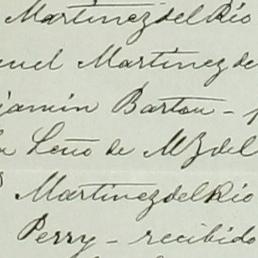 Martinez del Rio
nuel Martinez de
jamin Barton -
Leño de MZ del
Martinez del Rio
Perry - recibido